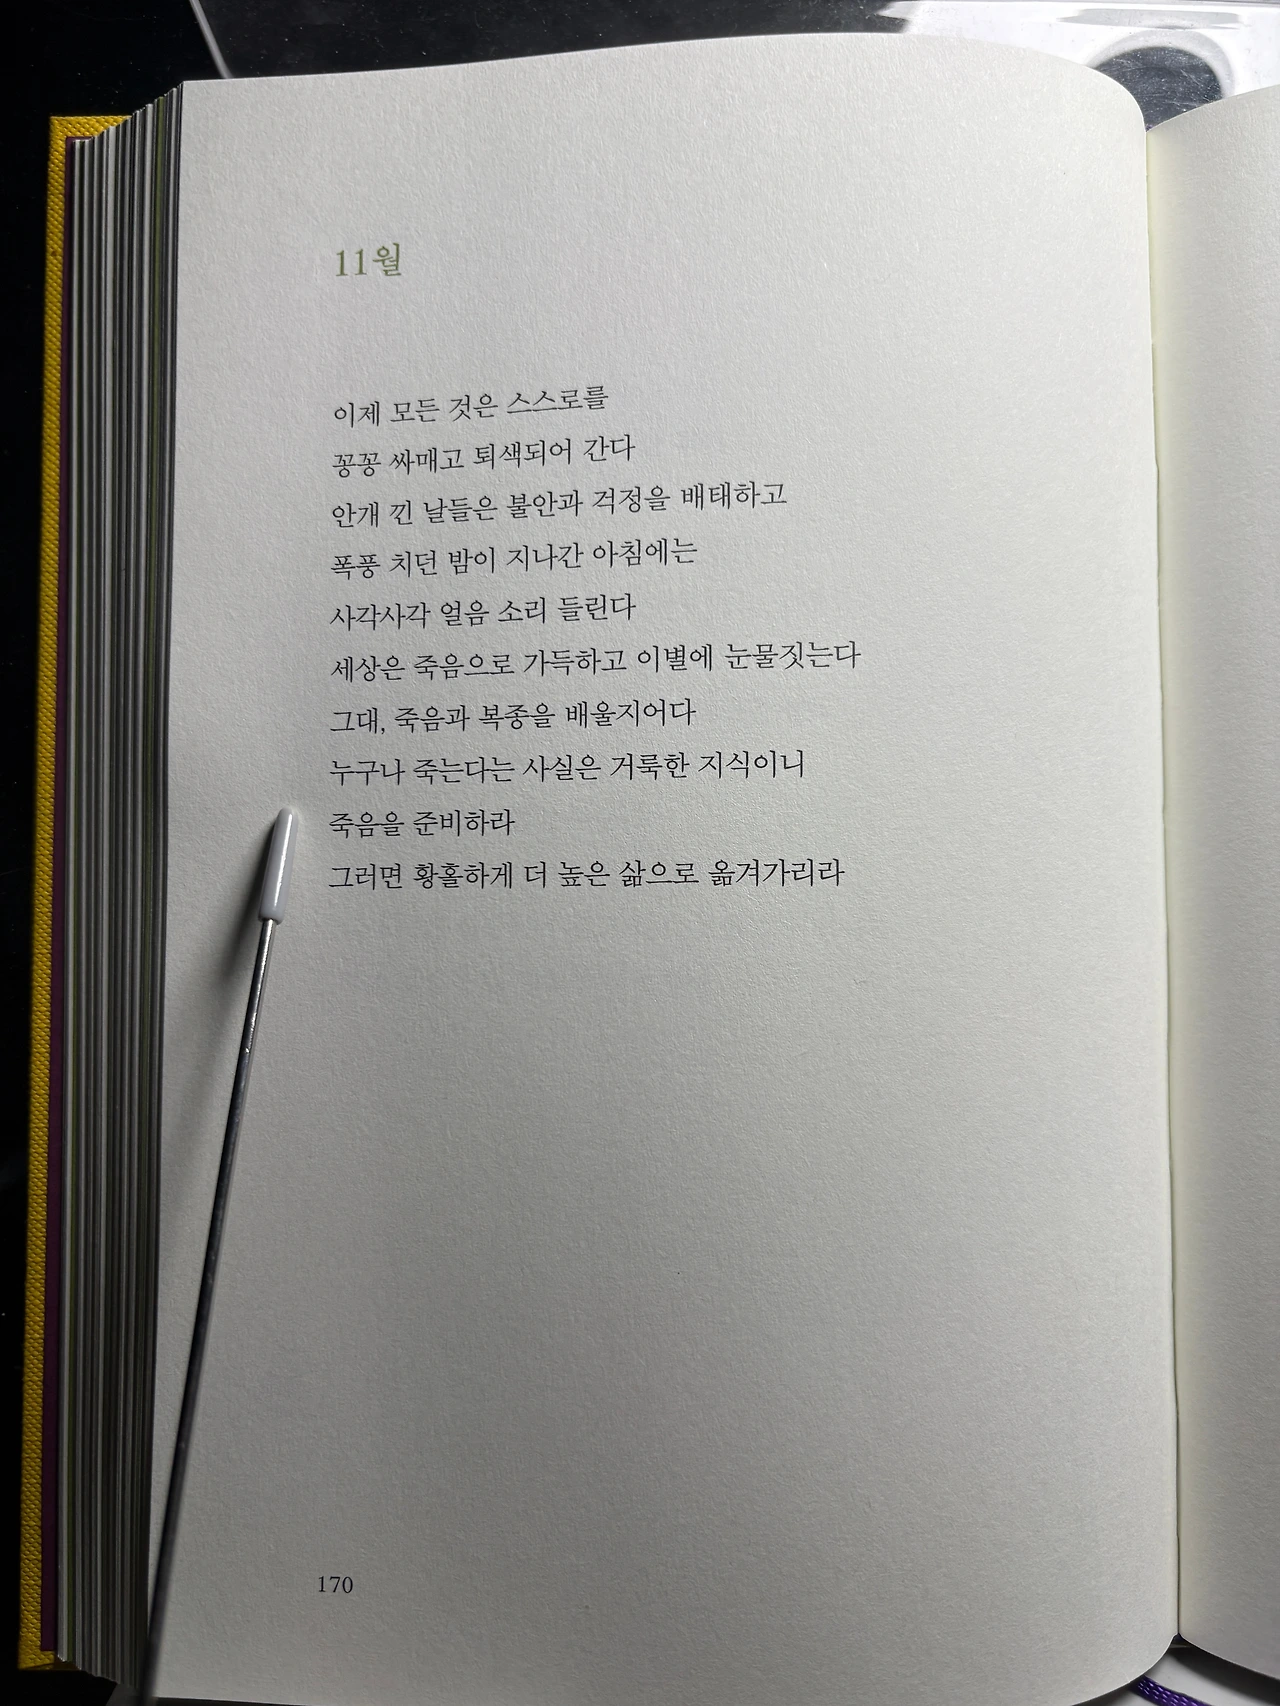 11월
이제 모든 것은 스스로를
꽁꽁 싸매고 퇴색되어 간다
안개 낀 날들은 불안과 걱정을 배태하고
폭풍 치던 밤이 지나간 아침에는
사각사각 얼음 소리 들린다
세상은 죽음으로 가득하고 이별에 눈물짓는다
그대, 죽음과 복종을 배울지어다
누구나 죽는다는 사실은 거룩한 지식이니
죽음을 준비하라
그러면 황홀하게 더 높은 삶으로 옮겨가리라
170